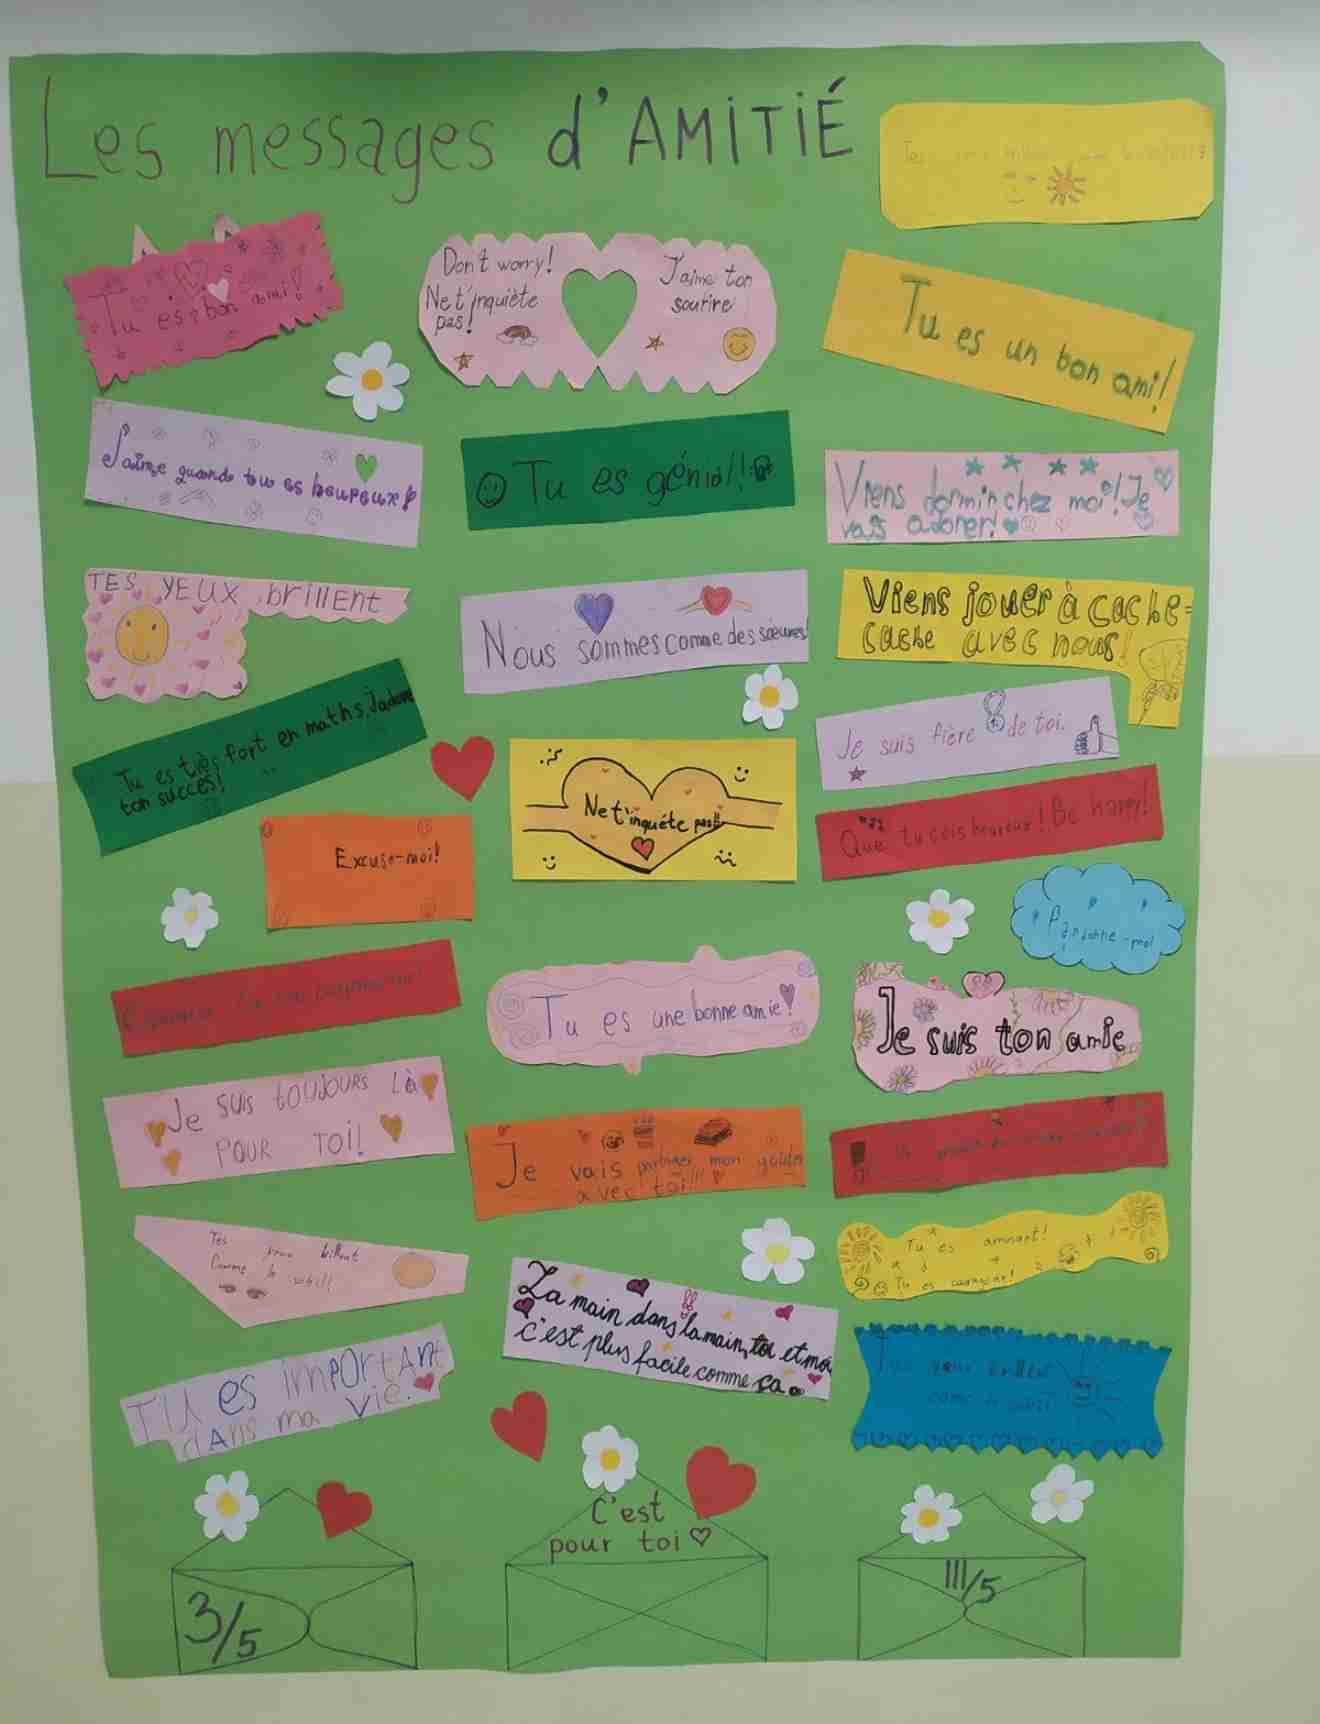 Les messages d'AMITIÉ
Tu es bon ami!
Don't worry!
Ne t'inquiète
pas!
J'aime ton
sourire
Tu es un bon ami!
J'aime quando tou es heureux!
Tu es génial!
Viens dormir chez moi! Je
vais adorer!
TES YEUX brillENT
Nous sommes comme des sœures!
Viens jouer à cache-
cache avec nous!
Tu es très fort en maths. J'adore
ton succès!
Ne t'inquiéte pas!!
Je suis fière de toi.
Que tu sois heureux! Be happy!
Excuse-moi!
Pardonne-moi
Tu es une bonne amie!
Je suis ton amie
Je suis toujours là
pour toi!
Je vais partager mon goûter
avec toi!!!
Tes yeux brillent
Comme le soleil!
La main dans la main, toi et moi
c'est plus facile comme ça.
Tu es amusant!
Tu es
TU es imPOrtANt
dANs ma vie.
yeux brillent
C'est
pour toi
3/5
III/5